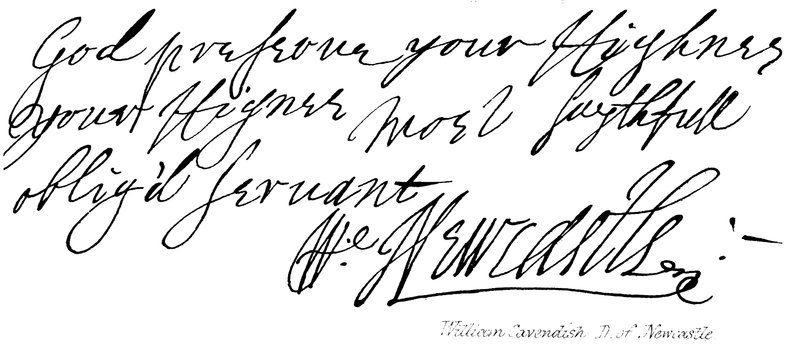 God preserve your Highnes
your Hignes most faythfull
oblig'd servant
W:e Newcastle :-
William Cavendish D. of Newcastle